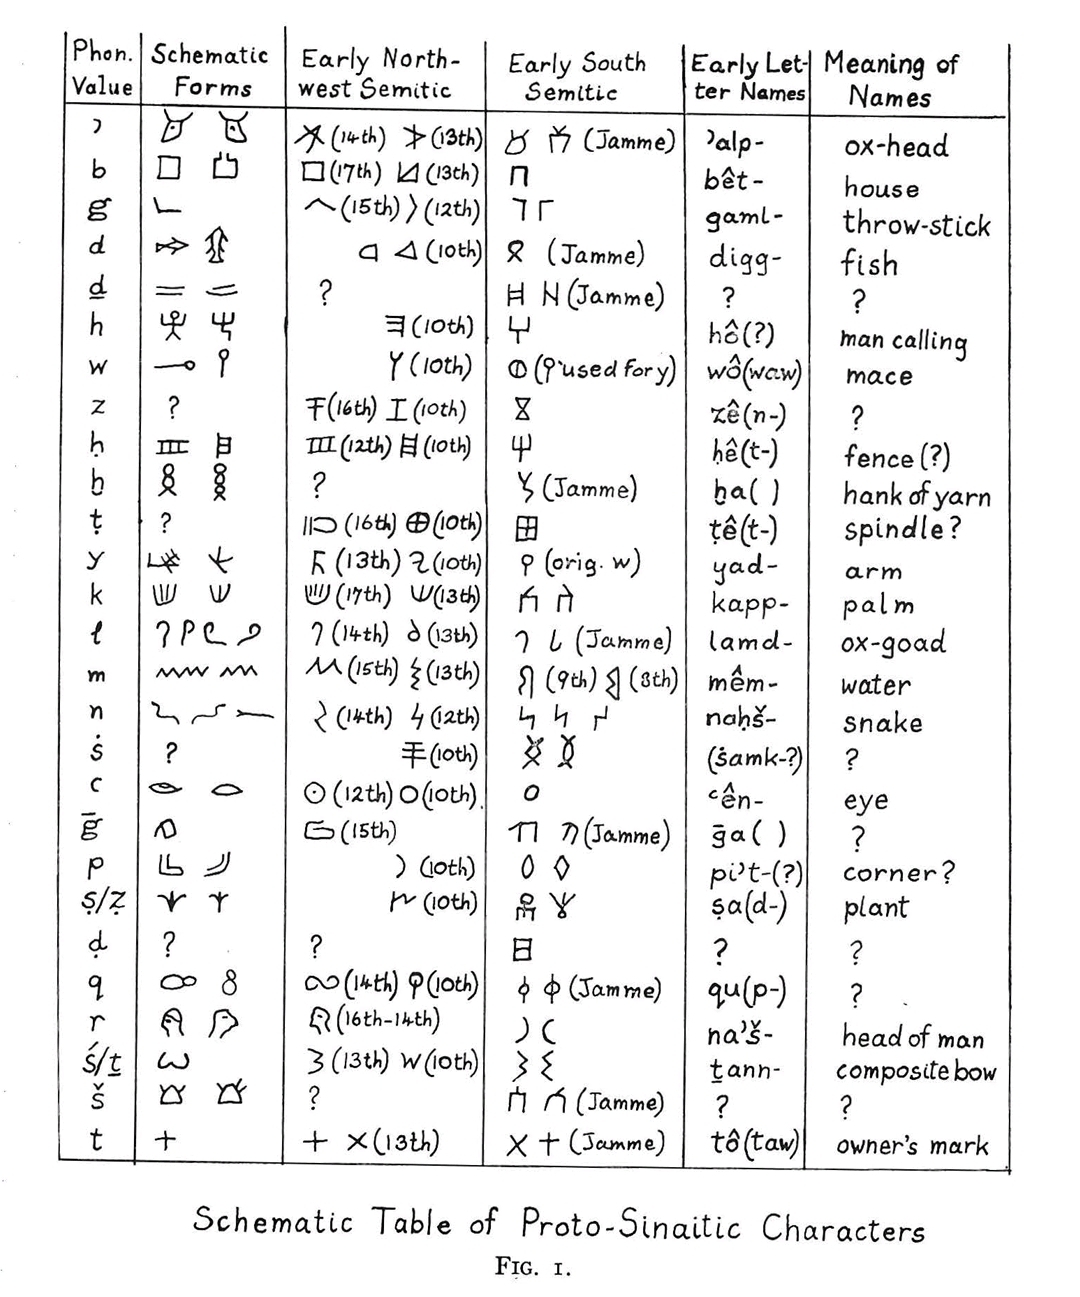 Phon. Value Schematic Forms Early North-west Semitic Early South Semitic Early Let-ter Names Meaning of Names
ʾ (14th) (13th) (Jamme) ʾalp- ox-head
b (17th) (13th) bêt- house
g (15th) (12th) gaml- throw-stick
d (10th) (Jamme) digg- fish
ḏ ? (Jamme) ? ?
h (10th) hô(?) man calling
w (10th) (used for y) wô(waw) mace
z ? (16th) (10th) zê(n-) ?
ḥ (12th) (10th) ḥê(t-) fence(?)
ḫ ? (Jamme) ḫa( ) hank of yarn
ṭ ? (16th) (10th) ṭê(t-) spindle?
y (13th) (10th) (orig. w) yad- arm
k (17th) (13th) kapp- palm
l (14th) (13th) (Jamme) lamd- ox-goad
m (15th) (13th) (9th) (8th) mêm- water
n (14th) (12th) naḥš- snake
ṡ ? (10th) (ṡamk-?) ?
ʿ (12th) (10th) ʿên- eye
ḡ (15th) (Jamme) ḡa( ) ?
p (10th) piʾt-(?) corner?
ṣ/ẓ (10th) ṣa(d-) plant
ḍ ? ? ? ?
q (14th) (10th) (Jamme) qu(p-) ?
r (16th-14th) naʾš- head of man
ś/ṯ (13th) (10th) ṯann- composite bow
š ? (Jamme) ? ?
t + + ×(13th) × + (Jamme) tô(taw) owner's mark
Schematic Table of Proto-Sinaitic Characters
FIG. 1.